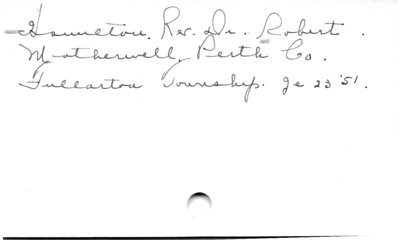 Hamilton, Rev. Dr. Robert.
Motherwell, Perth Co.
Fullarton Township. Je 23 '51.